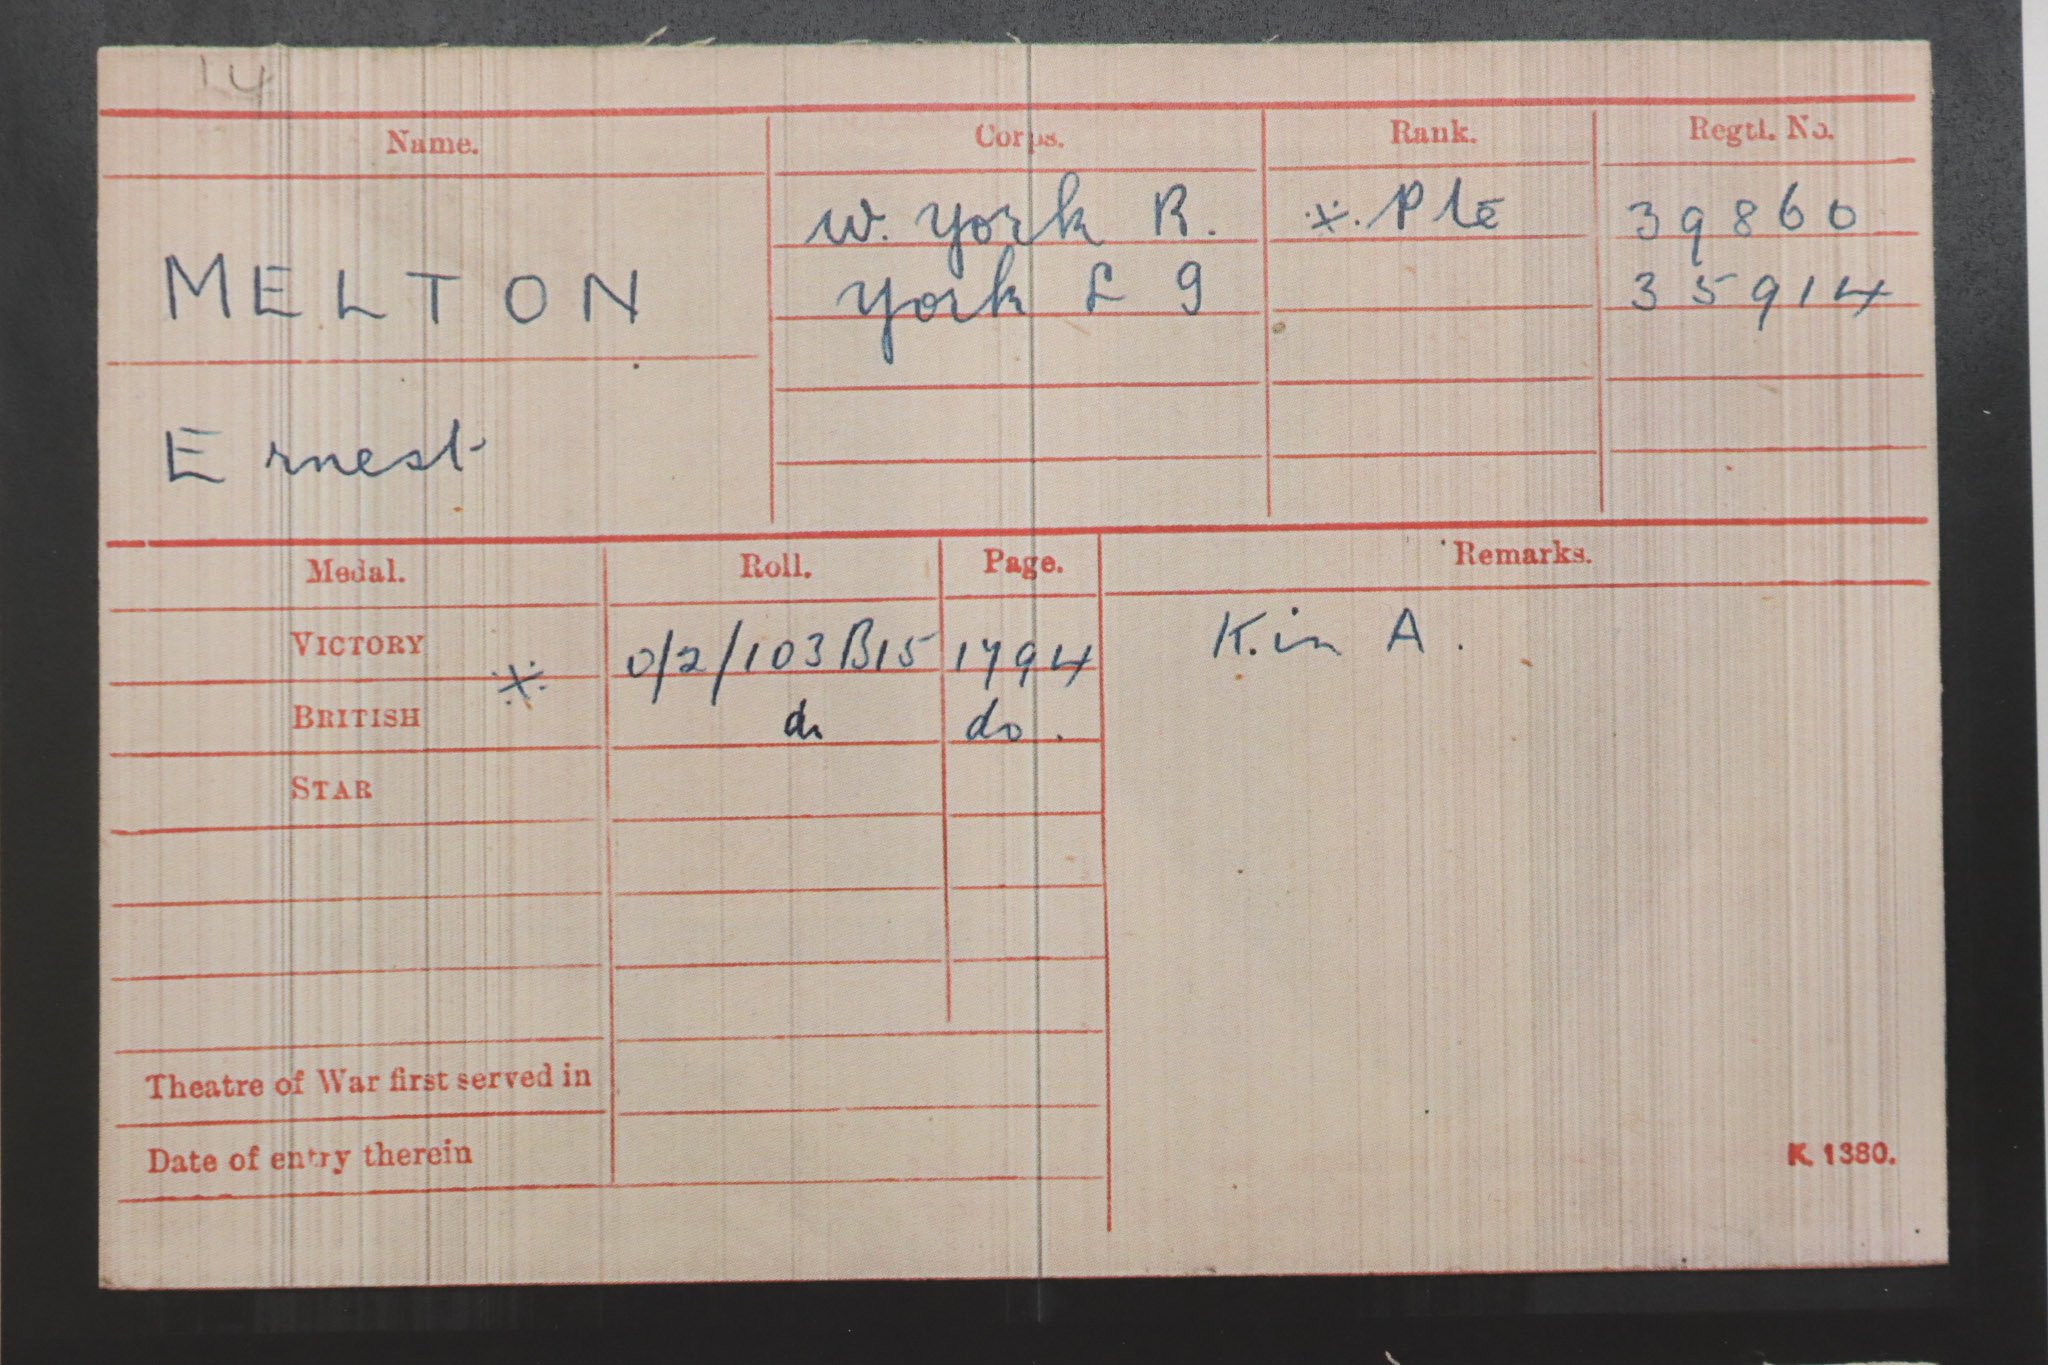 14
Name. Corps. Rank. Regtl. No.
W. York R. ※ Pte 39860
MELTON York L 9 35914
Ernest
Medal. Roll. Page. Remarks.
VICTORY ※ O/2/103B15 1794 K. in A.
BRITISH do do.
STAR
Theatre of War first served in
Date of entry therein
K. 1380.